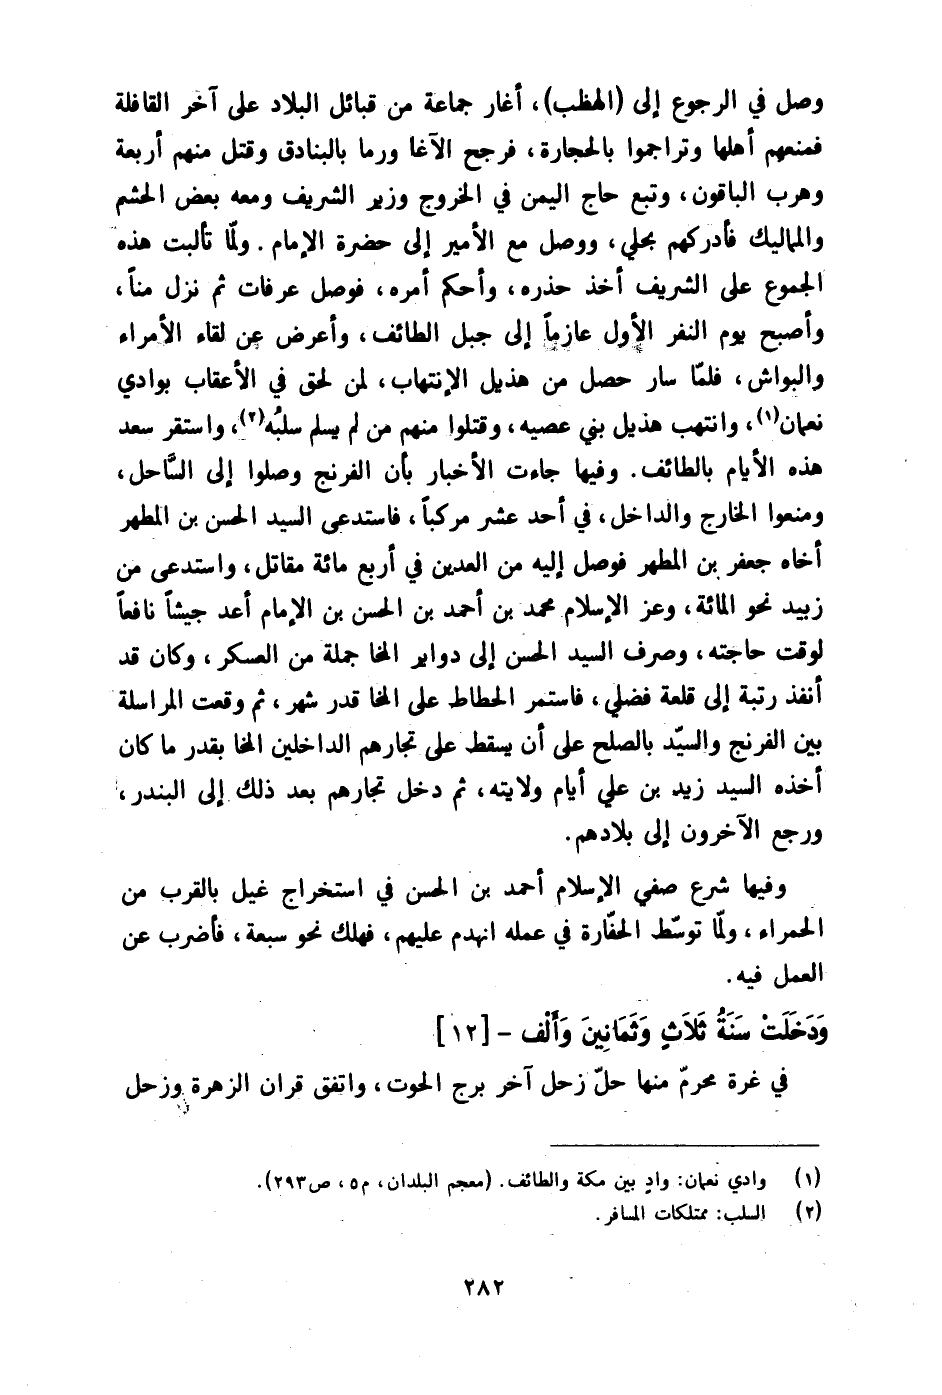 وصل في الرجوع إلى (الهظب)، أغار جماعة من قبائل البلاد على آخر القافلة
فمنعهم أهلها وتراجموا بالحجارة، فرجع الآغا ورما بالبنادق وقتل منهم أربعة
وهرب الباقون، وتبع حاج اليمن في الخروج وزير الشريف ومعه بعض الحشم
والمماليك فأدركهم بحلي، ووصل مع الأمير إلى حضرة الإمام. ولمّا تألبت هذه
الجموع على الشريف أخذ حذره، وأحكم أمره، فوصل عرفات ثم نزل مناً،
وأصبح يوم النفر الأول عازماً إلى جبل الطائف، وأعرض عن لقاء الأمراء
والبواش، فلمّا سار حصل من هذيل الإنتهاب، لمن لحق في الأعقاب بوادي
نعمان(١)، وانتهب هذيل بني عصيه، وقتلوا منهم من لم يسلم سلبُه(٢)، واستقر سعد
هذه الأيام بالطائف. وفيها جاءت الأخبار بأن الفرنج وصلوا إلى السَّاحل،
ومنعوا الخارج والداخل، في أحد عشر مركباً، فاستدعى السيد الحسن بن المطهر
أخاه جعفر بن المطهر فوصل إليه من العدين في أربع مائة مقاتل، واستدعى من
زبيد نحو المائة، وعز الإسلام محمد بن أحمد بن الحسن بن الإمام أعد جيشاً نافعاً
لوقت حاجته، وصرف السيد الحسن إلى دواير المخا جملة من العسكر، وكان قد
أنفذ رتبة إلى قلعة فضلي، فاستمر الحطاط على المخا قدر شهر، ثم وقعت المراسلة
بين الفرنج والسيّد بالصلح على أن يسقط على تجارهم الداخلين المخا بقدر ما كان
أخذه السيد زيد بن علي أيام ولايته، ثم دخل تجارهم بعد ذلك إلى البندر،
ورجع الآخرون إلى بلادهم.
وفيها شرع صفي الإسلام أحمد بن الحسن في استخراج غيل بالقرب من
الحمراء، ولمّا توسّط الحفّارة في عمله انهدم عليهم، فهلك نحو سبعة، فأضرب عن
العمل فيه.
وَدَخَلَتْ سَنَةُ ثَلاَثٍ وَثَمَانِينَ وَأَلْف – [١٢]
في غرة محرمّ منها حلّ زحل آخر برج الحوت، واتفق قران الزهرة وزحل
(١) وادي نعمان: وادٍ بين مكة والطائف. (معجم البلدان، م٥، ص٢٩٣).
(٢) السلب: ممتلكات المسافر.
٢٨٢